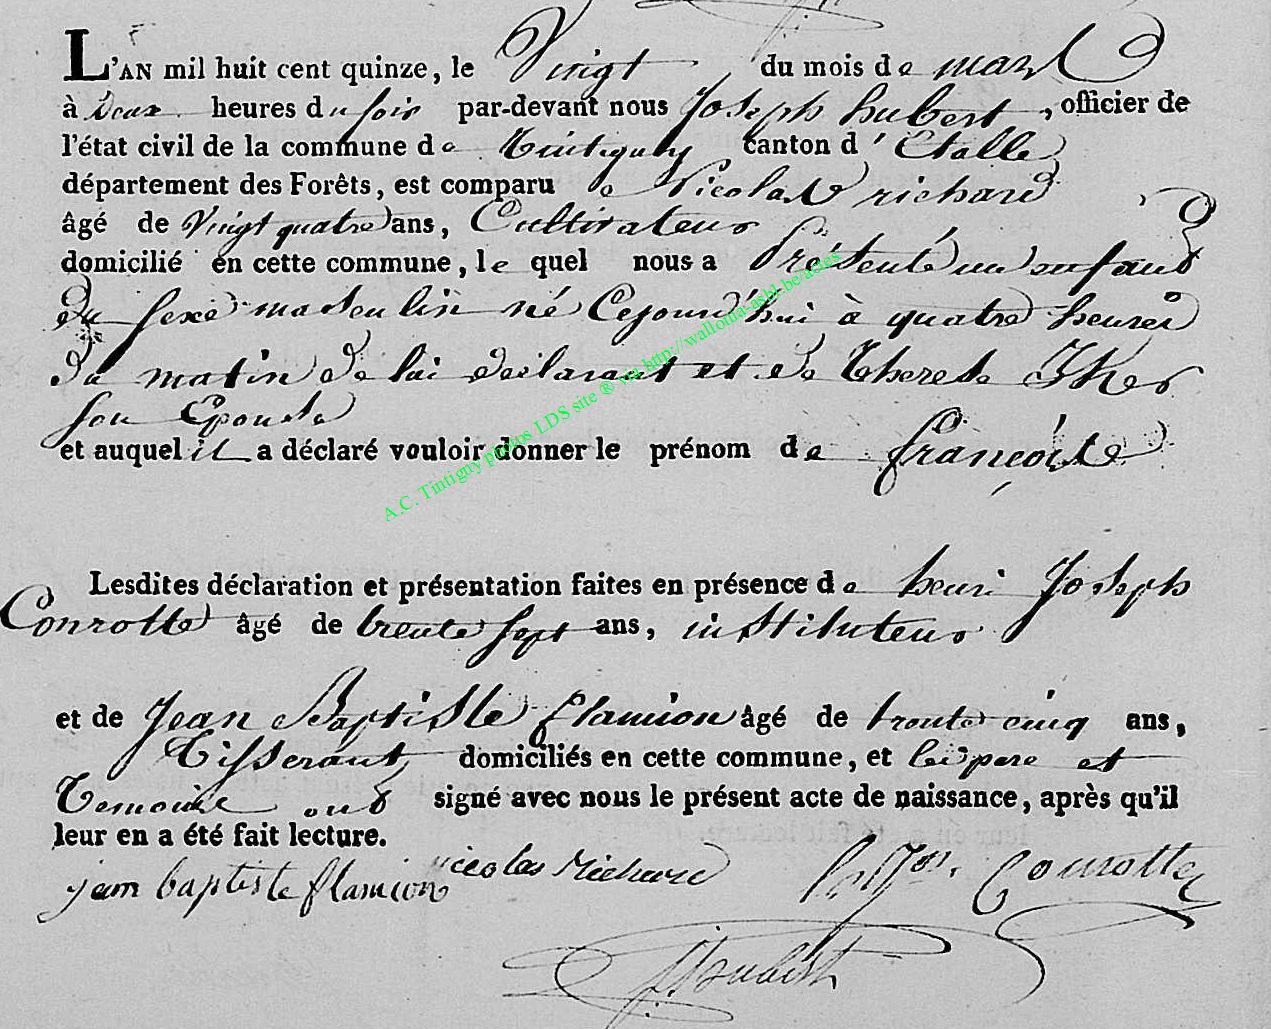 L'AN mil huit cent quinze, le Vingt du mois de mars
à Deux heures du soir par-devant nous Joseph hubert, officier de
l'état civil de la commune de tintigny canton d'Etalle
département des Forêts, est comparu Nicolas richard
âgé de Vingt quatre ans, Cultivateur
domicilié en cette commune, le quel nous a Présenté un enfant
du sexe masculin né Cejourd'hui à quatre heures
du matin de lui déclarant et de therese
son Epouse
et auquel il a déclaré vouloir donner le prénom de françois
Lesdites déclaration et présentation faites en présence de henri Joseph
Conrotte âgé de trente sept ans, instituteur
et de Jean Baptiste flamion âgé de trente cinq ans,
tisserant domiciliés en cette commune, et les pere et
temoins ont signé avec nous le présent acte de naissance, après qu'il
leur en a été fait lecture.
jean baptiste flamion nicolas Richard h. Jos. Conrotte
J. hubert
A.C. Tintigny photos LDS site ® via http://wallonia-asbl.be/actes